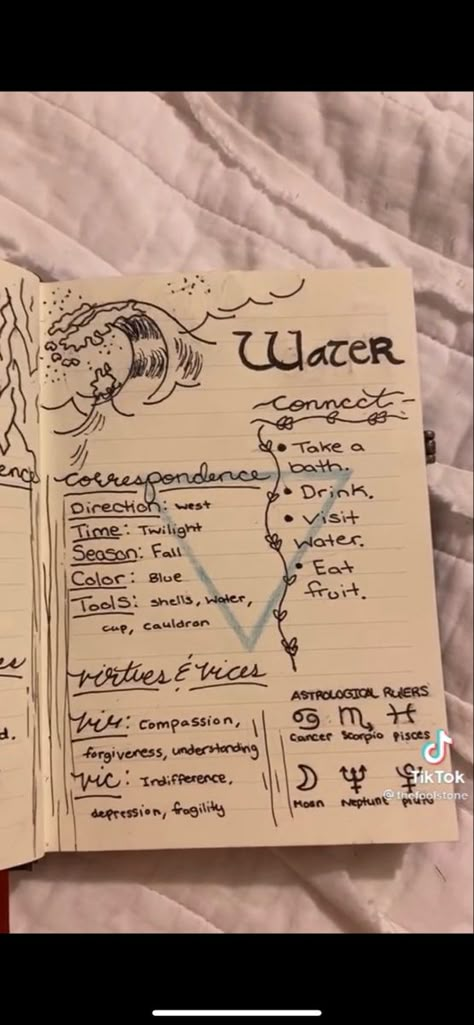 Water
Connect:
• Take a
bath.
• Drink.
• visit
water.
• Eat
fruit.
ence
correspondence
Direction: west
Time: Twilight
Season: Fall
Color: Blue
Tools: shells, water,
cup, cauldron
virtues & vices
vir: Compassion,
forgiveness, understanding
vic: Indifference,
depression, fragility
d.
ASTROLOGICAL RULERS
Cancer Scorpio Pisces
Moon Neptune Pluto
TikTok
@thefoolstone